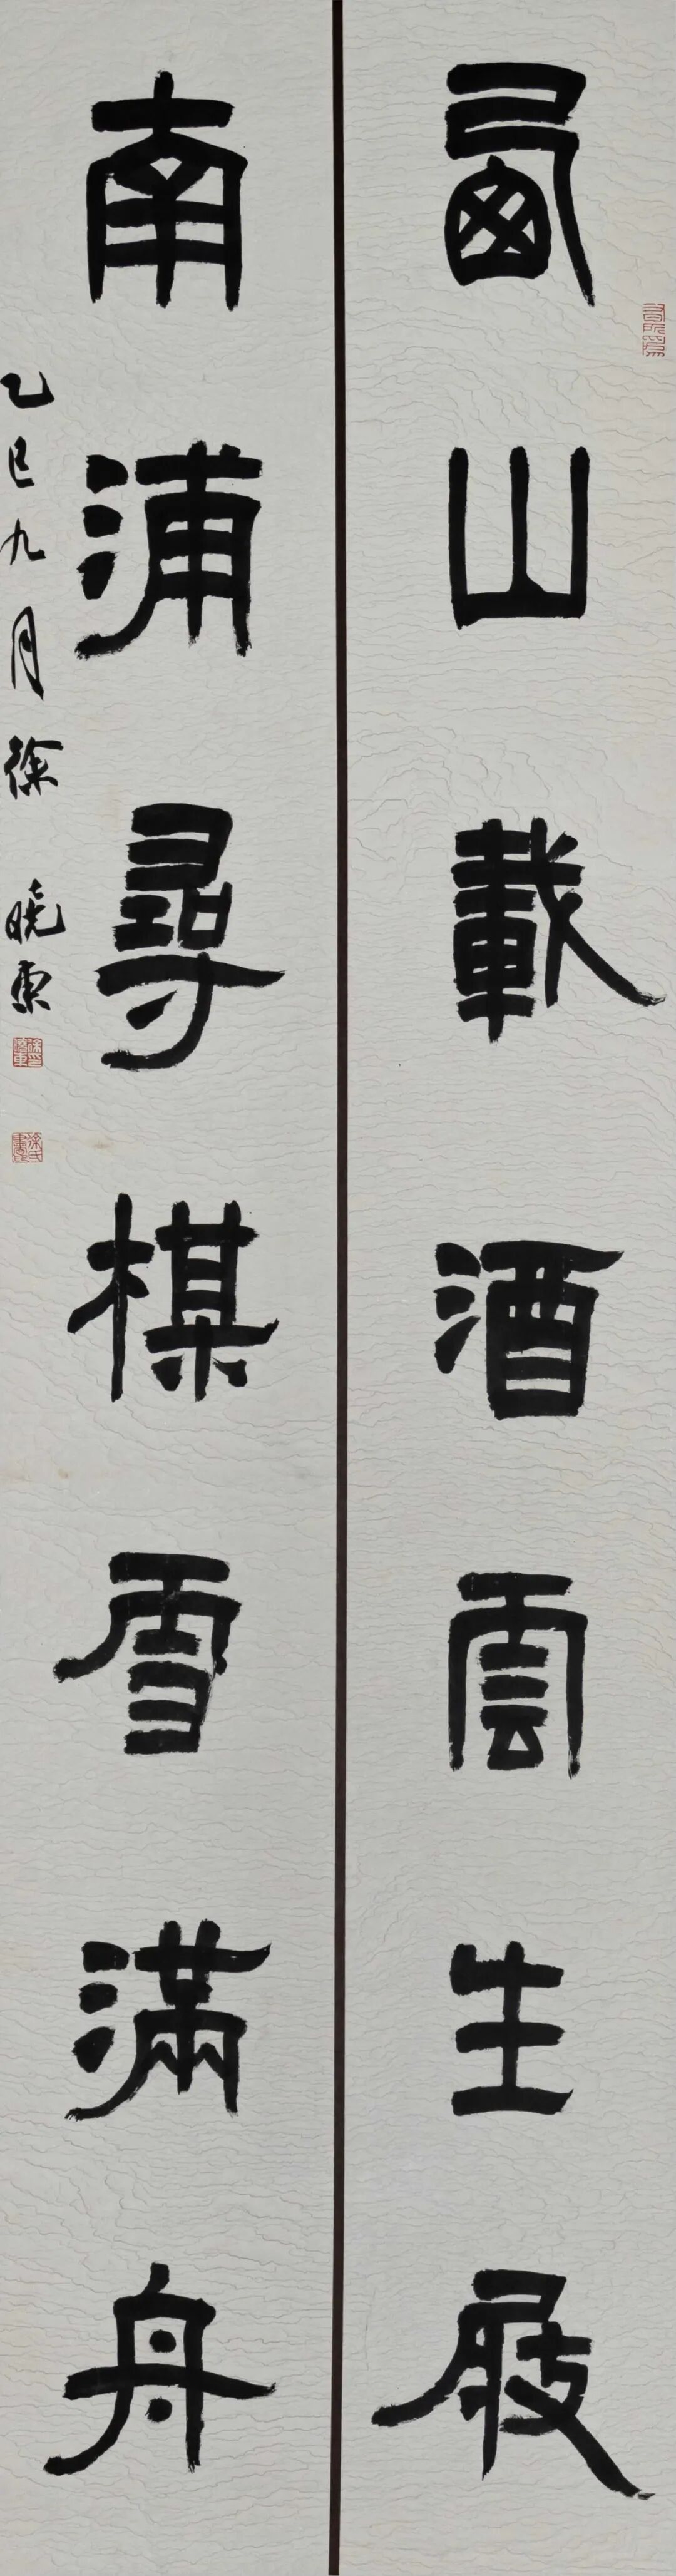 西山載酒雲生屐
南浦尋棋雪滿舟
乙巳九月徐曉東